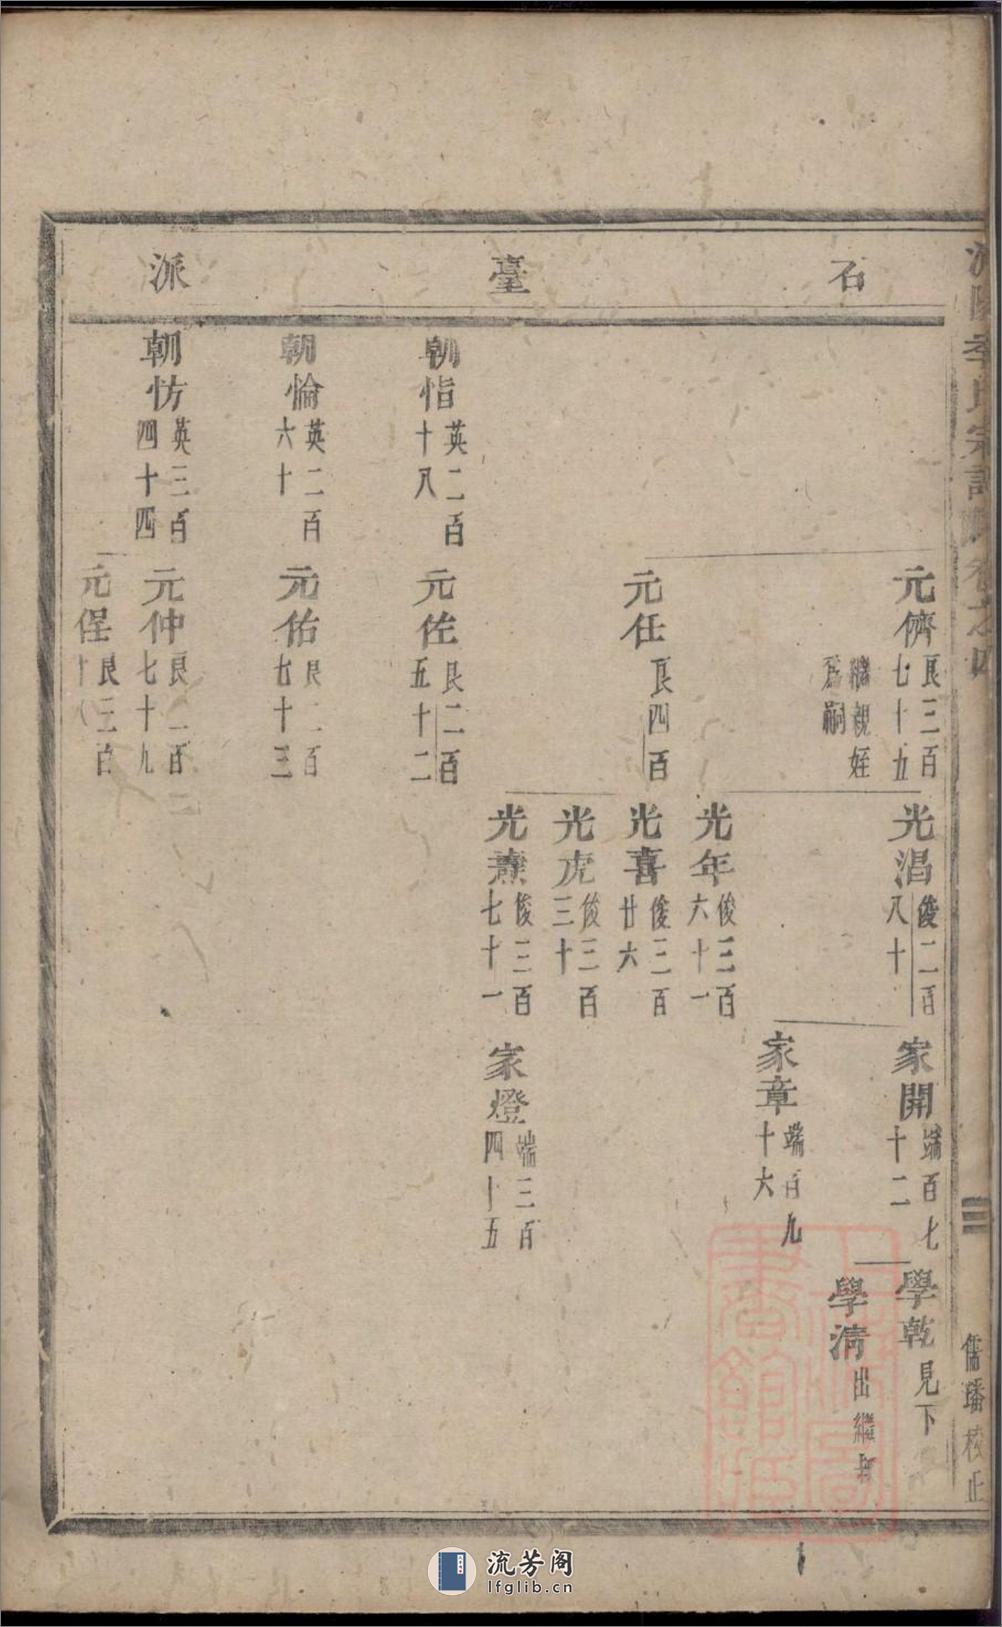 石臺派
元儕
良三百七十五
繼親姪爲嗣
光淐
俊二百八十
家開
端百七十二
學乾
見下
學淸
出繼
家章
端百九十六
光年
俊三百六十一
元任
良四百
光喜
俊三百廿六
光虎
俊三百三十
光燾
俊三百七十一
家燈
端三百四十五
朝恉
英二百十八
元佐
良二百五十二
朝愉
英二百六十
元佑
良二百七十三
朝恈
英三百四十四
元仲
良二百七十九
元侱
良三百
李氏宗譜
卷之四
三
儒璠校正
上海圖書館藏
流芳阁
lfglib.cn